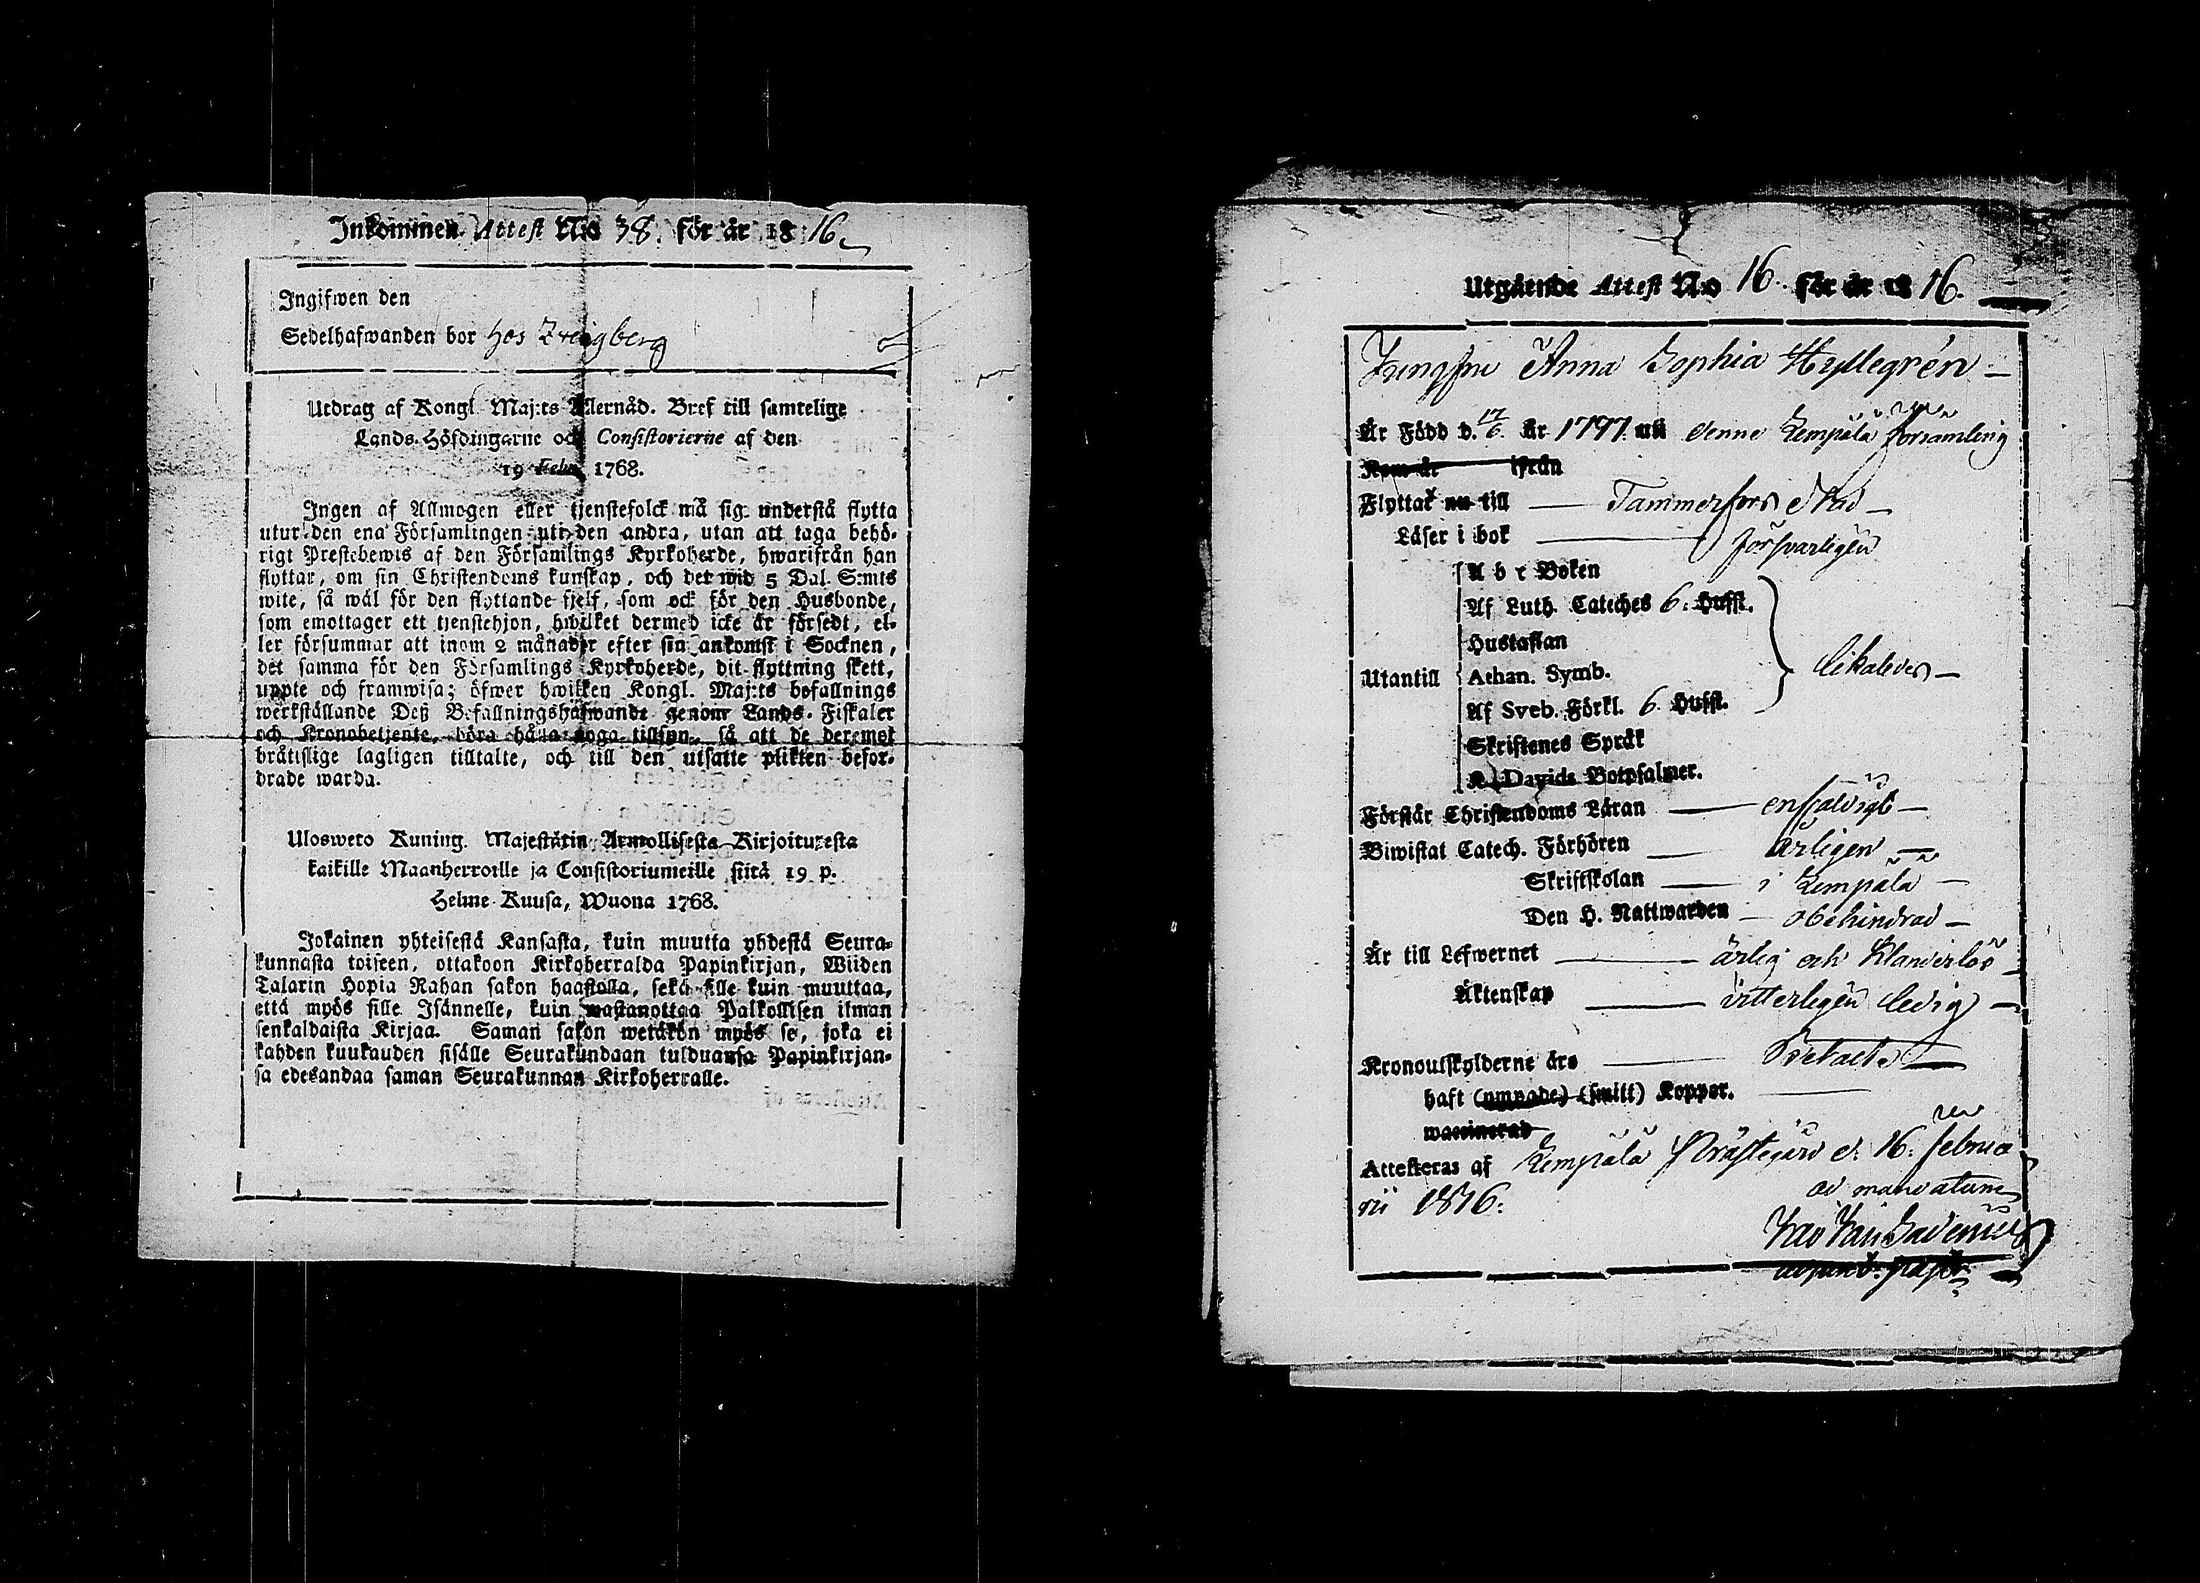 Inkommen Attest No 38. för år 18 16
Ingifwen den
Sedelhafwanden bor hos Zweigberg
Utdrag af Kongl. Maj:ts Allernåd. Bref till samtelige
Lands-Höfdingarne och Consistorierne af den
19 Febr. 1768.
Ingen af Allmogen eller tjenstefolck må sig understå flytta
utur den ena Församlingen uti den andra, utan att taga behö-
rigt Prestebewis af den Församlings Kyrkoherde, hwarifrån han
flyttar, om sin Christendoms kunskap, och det wid 5 Dal. S:mts
wite, så wäl för den flyttande sjelf, som ock för den Husbonde,
som emottager ett tjenstehjon, hwilket dermed icke är försedt, el-
ler försummar att inom 2 månader efter sin ankomst i Socknen,
det samma för den Församlings Kyrkoherde, dit flyttning skett,
uppte och framwisa; öfwer hwilken Kongl. Maj:ts befallnings
werkställande Deß Befallningshafwande genom Lands-Fiskaler
och Kronobetjente, böra hålla noga tillsyn, så att de deremot
brätislige lagligen tilltalte, och till den utsatte plikten befor-
drade warda.
Ulosweto Kuning. Majestätin Armollisesta Kirjoituxesta
kaikille Maanherroille ja Consistoriumeille siitä 19 p.
Helme-Kuusa, Wuona 1768.
Jokainen yhteisestä Kansasta, kuin muutta yhdestä Seura-
kunnasta toiseen, ottakoon Kirkoherralda Papinkirjan, Wiiden
Talarin Hopia Rahan sakon haastolla, sekä sille kuin muuttaa,
että myös sille Isännelle, kuin wastanottaa Palkollisen ilman
senkaldaista Kirjaa. Saman sakon wetäkön myös se, joka ei
kahden kuukauden sisälle Seurakundaan tulduansa Papinkirjan-
sa edesandaa saman Seurakunnan Kirkoherralle.
Utgående Attest No 16. för år 18 16.
Jungfru Anna Sophia Hyllegrén
Är Född d. 17/6. år 1797. uti denne Lempälä församling
Kom år ifrån
Flyttar nu till Tammerfors Stad
Läser i bok försvarligen
A b c Boken
Af Luth. Cateches 6. Hufst.
Hustaflan
Utantill Athan. Symb. likaledes
Af Sveb. Förkl. 6. Hufst.
Skriftenes Språk
K. Davids Botpsalmer.
Förstår Christendoms Läran enfaldigt
Biwistat Catech. Förhören årligen
Skriftskolan i Lempälä
Den H. Nattwarden obehindrad
Är till Lefwernet ärlig och klanderlös
Äktenskap vitterligen ledig
Kronoutskylderne äro Betalte
haft (ympade) (smitt) Koppor.
waccinerad
Attesteras af Lempälä Prästegård d. 16. februa
rii 1816.
ad mandatum